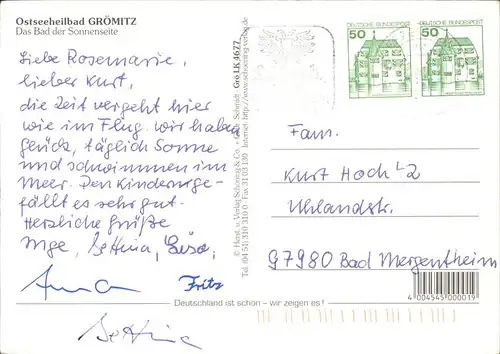 Ostseeheilbad GRÖMITZ
Das Bad der Sonnenseite
Liebe Rosemarie,
lieber Kurt,
die Zeit vergeht hier
wie im Flug. Wir haben
Glück, täglich Sonne
und schwimmen im
Meer. Den Kindern ge-
fällt es sehr gut.
Herzliche Grüße
Inge, Bettina, Lisa,
Anna Fritz
Bettina
© Herst. u. Verlag Schöning & Co. + Gebr. Schmidt Grö LK 4677
Tel. (04 51) 310 310 Fax 31 03 139 Internet: http://www.schoening-verlag.de
50 DEUTSCHE BUNDESPOST
50 DEUTSCHE BUNDESPOST
Fam.
Kurt Hoch
Uhlandstr.
97980 Bad Mergentheim
4 004545 000019
Deutschland ist schön – wir zeigen es !